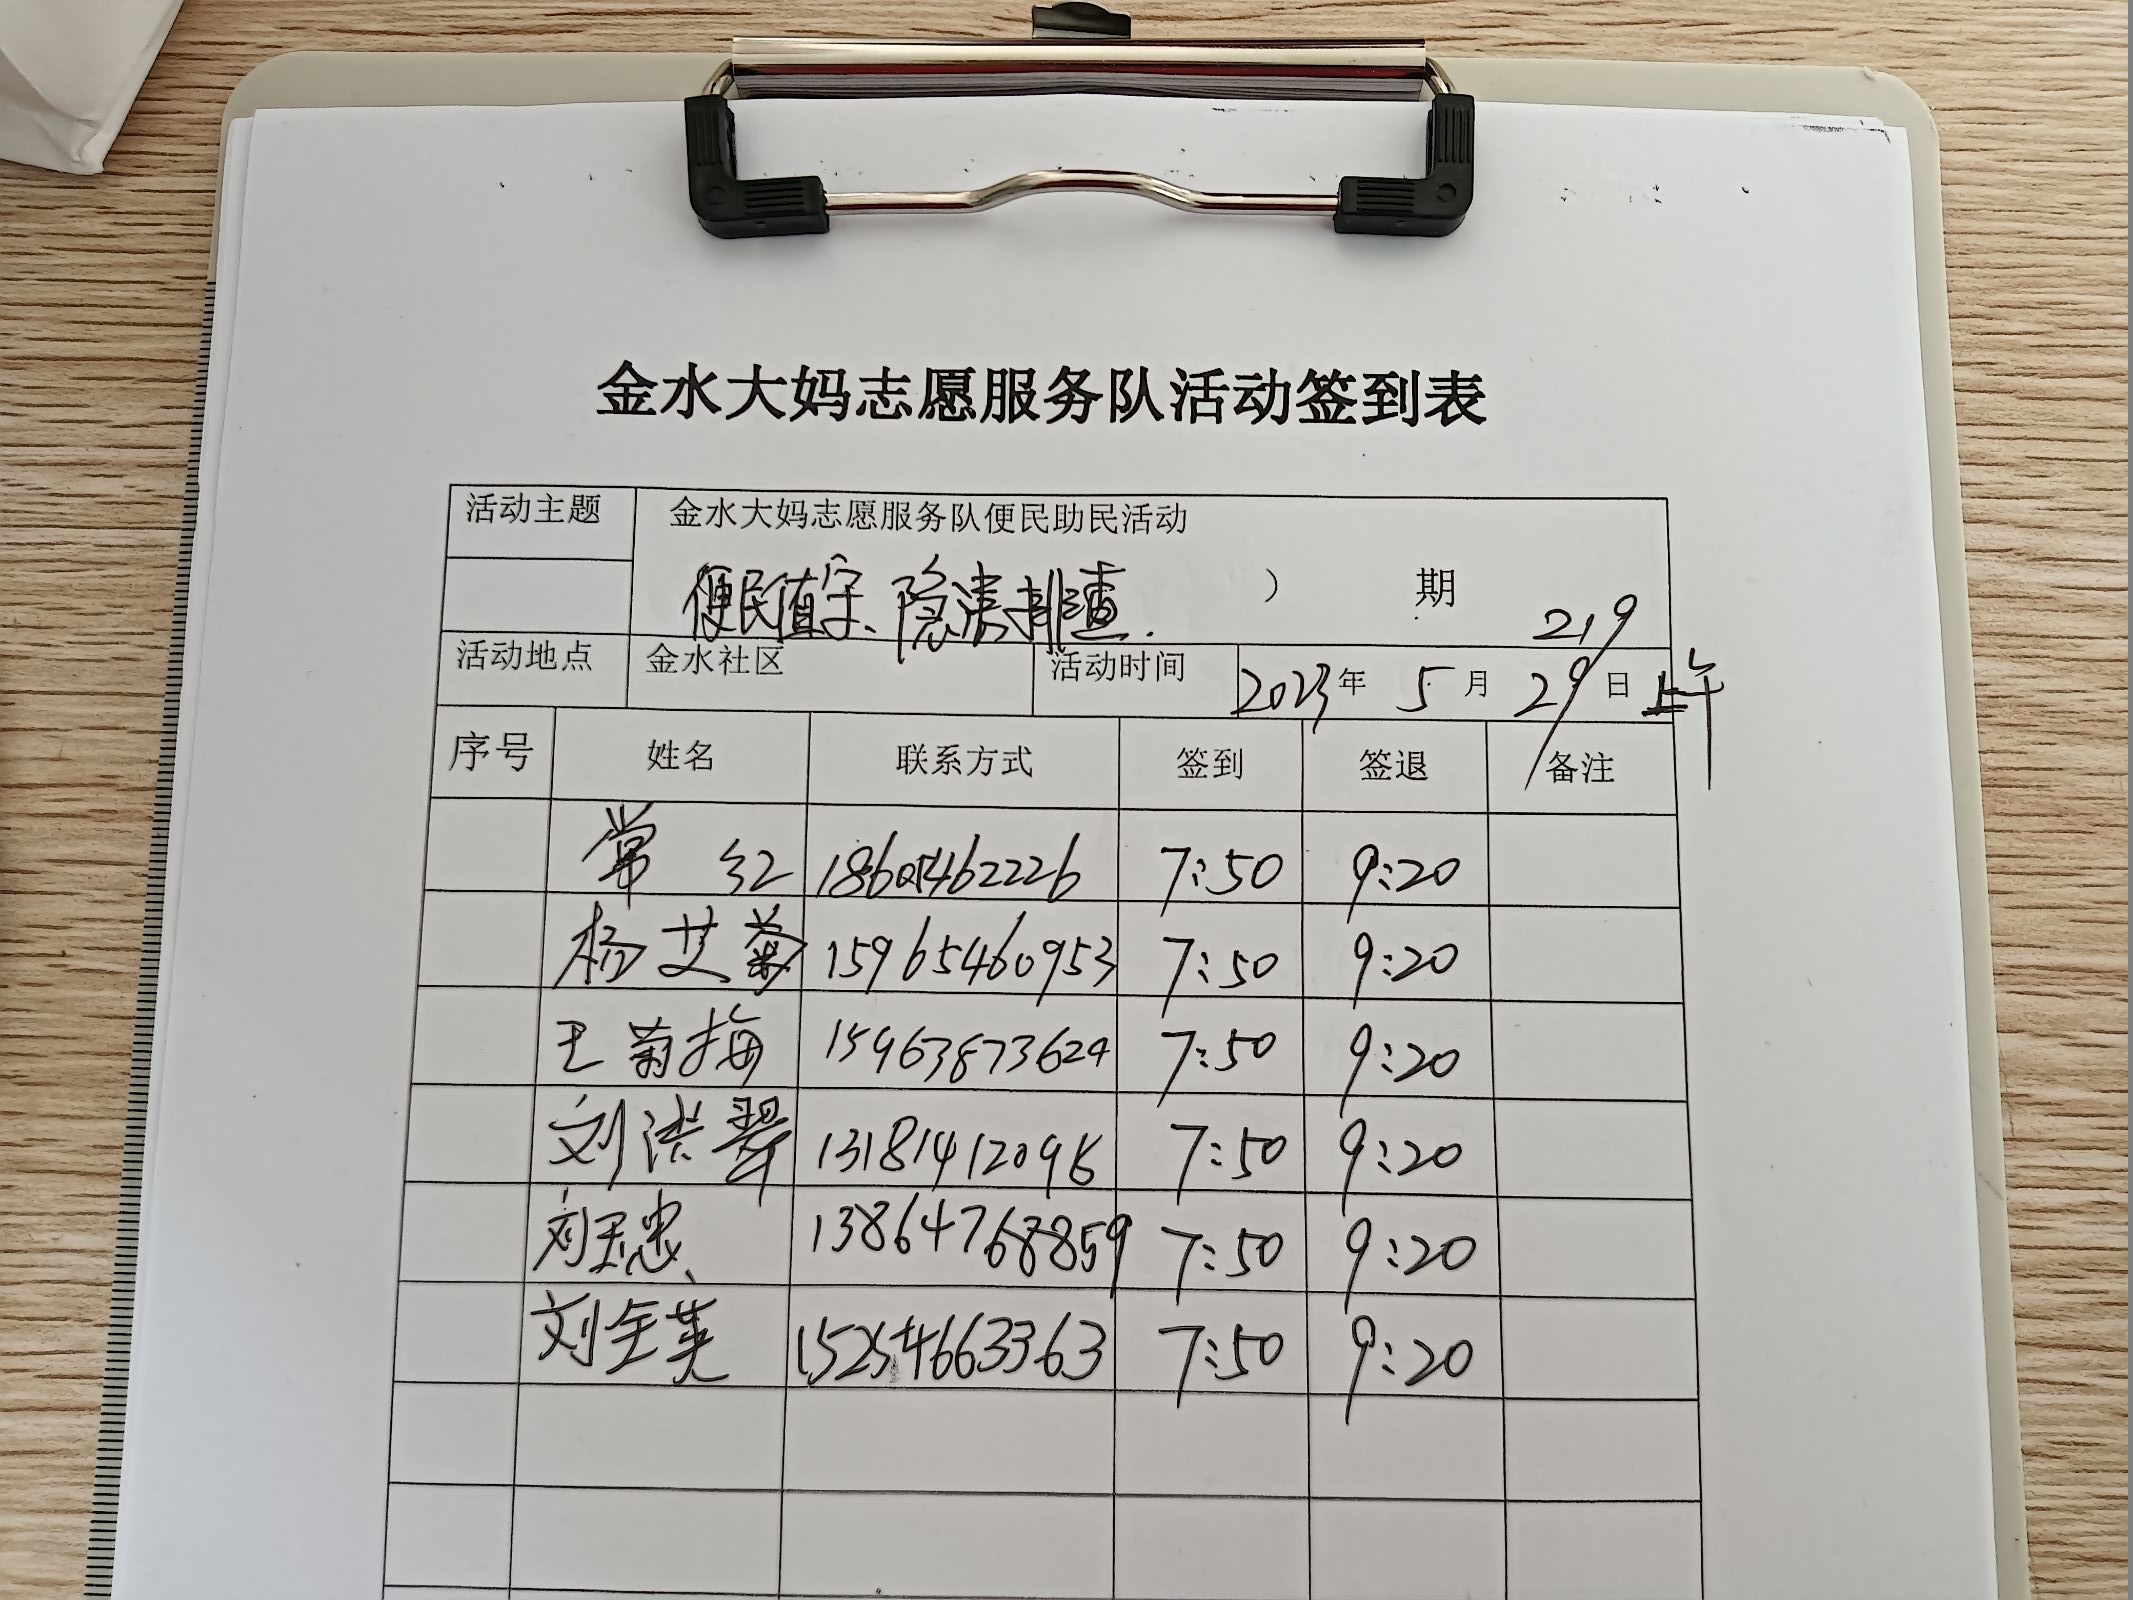 金水大妈志愿服务队活动签到表
活动主题 金水大妈志愿服务队便民助民活动
便民值守、隐患排查. ） 期 219
活动地点 金水社区 活动时间 2023年 5月 29日 上午
序号 姓名 联系方式 签到 签退 备注
常红 7:50 9:20
杨艾菊 15965460953 7:50 9:20
王菊梅 15963873624 7:50 9:20
刘洪翠 7:50 9:20
刘玉忠 13864768859 7:50 9:20
刘全英 15254663363 7:50 9:20